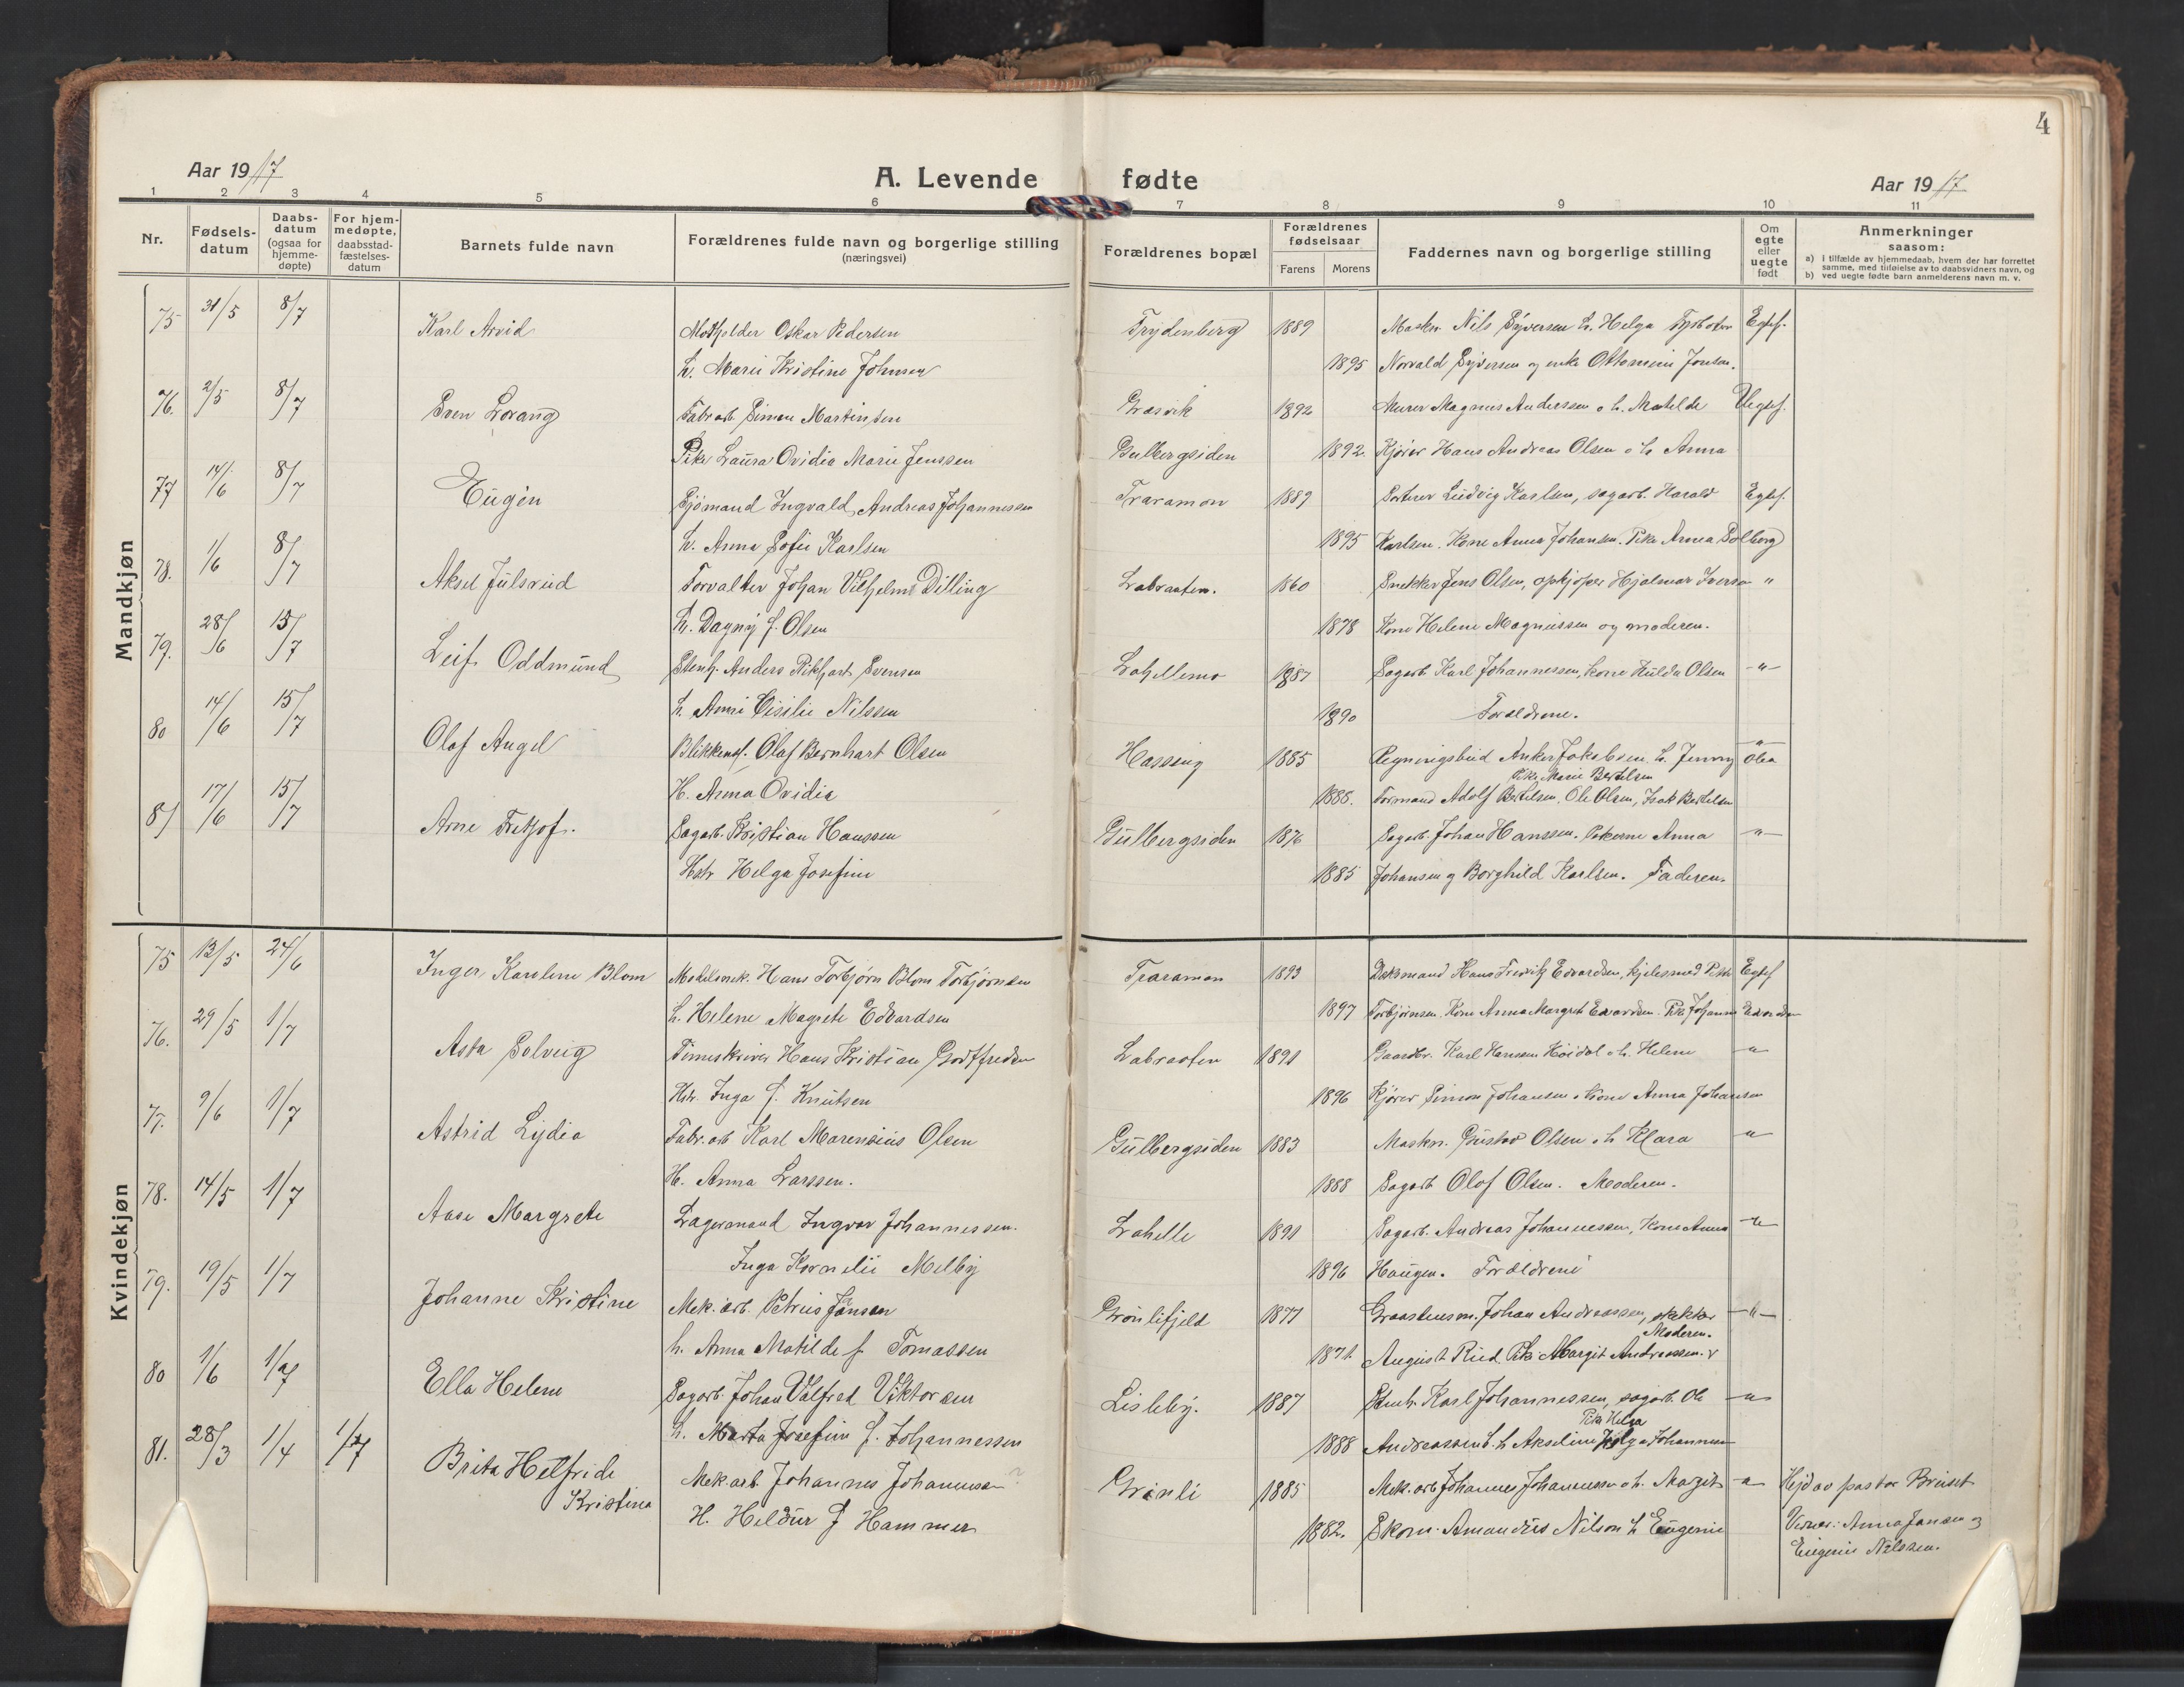 4
Aar 1917
A. Levende fødte
Aar 1917
1 2 3 4 5 6 7 8 9 10 11
Nr.
Fødsels-
datum
Daabs-
datum
(ogsaa for
hjemme-
døpte)
For hjem-
medøpte,
daabsstad-
fæstelses-
datum
Barnets fulde navn
Forældrenes fulde navn og borgerlige stilling
(næringsvei)
Forældrenes bopæl
Forældrenes
fødselsaar
Farens Morens
Faddernes navn og borgerlige stilling
Om
egte
eller
uegte
født
Anmerkninger
saasom:
a) i tilfælde av hjemmedaab, hvem der har forrettet
samme, med tilføielse av to daabsvidners navn, og
b) ved uegte fødte barn anmelderens navn m. v.
Mandkjøn
75 31/5 8/7 Karl Arvid Oskar Pedersen 1889 Maskn. Nils Syversen h. Helga Egtef.
h. Marie Kristine Johnsen 1895 Norvald Syversen og enke Ottomine Jensen.
76. 2/5 8/7 Sven Lorang Fabr.arb. Simen Martinsen Græsvik 1892 Murer Magnus Anderssen o h. Matilde Uegtef.
Pike Laura Ovidia Marie Jenssen Gulbergsiden 1892. Kjører Hans Andreas Olsen o h. Anna
77 14/6 8/7 Eugén Sjømand Ingvald Andreas Johannessen Traramon 1889 Sorterer Ludvig Karlsen, sagarb. Harald Egtef.
h. Anna Sofie Karlsen 1895 Karlsen. Kone Anna Johansen. Pike Anna Solborg
78. 1/6 8/7 Aksel Julsrud Forvalter Johan Vilhelm Dilling Labraaten. 1860 Snekker Jens Olsen, opkjøper Hjalmar Iversen "
h. Dagny f. Olsen 1878 Kone Helene Magnussen og moderen.
79. 28/6 15/7 Leif Oddmund Stenh. Anders Rikhart Svensen Lahellemo 1887 Sagarb Karl Johannessen, kone Hulda Olsen -"-
h. Anni Cisilie Nilssen 1890 Forældrene.
80 14/6 15/7 Olaf Angel Blikkensl. Olaf Bernhart Olsen Hassing 1885 Regningsbud Anker Jakobsen h. Jenny Olea -"-
Pike Marie Bertelsen
H. Anna Ovidia 1888. Formand Adolf Bertelsen, Ole Olsen, Isak Bertelsen
81 17/6 15/7 Arne Fritjof. Sagarb. Kristian Hanssen Gulbergsiden 1876 Sagarb. Johan Hanssen. Pikerne Anna -"-
Hstr Helga Josefine 1885 Johansen og Borghild Karlsen. Faderen.
Kvindekjøn
75 13/5 24/6 Inger Karolene Blom Hans Torbjørn Blom Torbjørnsen Traramon 1893 Dæksmand Hans Fredrik Edvardsen, kjelesmed Egtef
h. Helene Magrete Edvardsen 1897 Torbjørnsen. Kone Anna Margret Edvardsen. Pike Johanne Edvardsen
76. 29/5 1/7 Asta Solveig Timeskriver Hans Kristian Godtfredsen Labraaten 1891 Gaardbr. Karl Hanssen Høidal o h. Helene -"-
Hstr. Inga f. Knutsen 1896 Kjører Simon Johansen o kone Anna Johansen
77. 9/6 1/7 Astrid Lydia Fabr.arb Karl Marensius Olsen Gulbergsiden 1883 Maskn. Gustav Olsen o h Klara -"-
H. Anna Larssen. 1888 Sagarb Olof Olsen. Moderen.
78. 14/5 1/7 Aase Margrete Lagermand Ingvar Johannessen. Lahelle 1891 Sagarb. Andreas Johannessen, Kone Anna -"-
Inga Kornelie Melby 1896 Haugen. Forældrene
79. 19/5 1/7 Johanne Kristine Mek. arb. Petrus Jansen Grønlifjeld 1877 Graastensm. Johan Andreassen, -"-
Moderen.
h. Anna Matilde f. Tomassen 1871 August Rud. Pike Margit Andreassen.
80 1/6 1/7 Ella Helene Sagarb. Johan Valfred Viktorsen Lisleby. 1887 Stenh. Karl Johannessen, sagarb. Ole -"-
Pike Helga
h. Marta Josefine f. Johannessen 1888 Andreassen o. h Akseline Johannessen
81. 28/3 1/4 1/7 Brita Helfride Mek. arb. Johannes Johannessen Grønli 1885 Mek. arb Johannes Johannessen o h. Magit -"- Hjd av pastor Bruset
Kristina H. Heldur f Hammer 1882. Skom. Amandus Nilson h Eugenie Vidner: Anna Jansen og
Eugenie Nilssen.